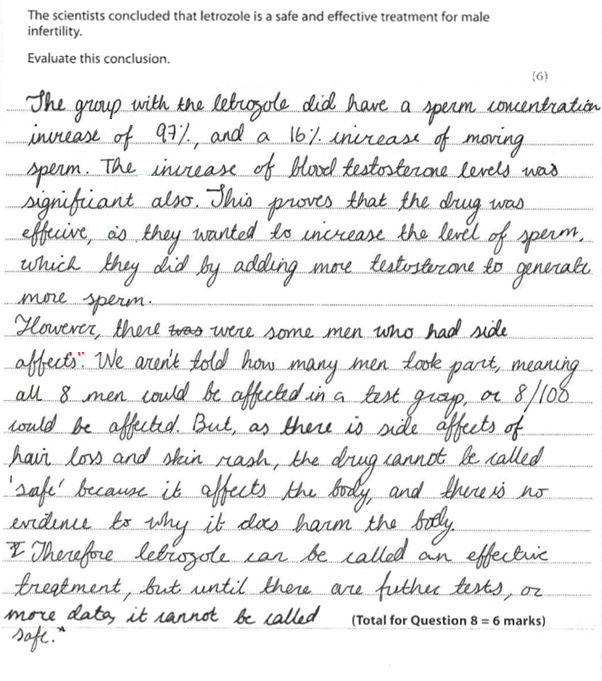 The scientists concluded that letrozole is a safe and effective treatment for male
infertility.
Evaluate this conclusion.
(6)
The group with the letrozole did have a sperm concentration
increase of 97%, and a 16% increase of moving
sperm. The increase of blood testosterone levels was
significant also. This proves that the drug was
effecive, as they wanted to increase the level of sperm,
which they did by adding more testosterone to generate
more sperm.
However, there was were some men who had side
affects". We aren't told how many men took part, meaning
all 8 men could be affected in a test group, or 8/100
could be affected. But, as there is side affects of
hair loss and skin rash, the drug cannot be called
'safe' because it affects the body, and there is no
evidence to why it does harm the body.
I Therefore letrozole can be called an effective
treatment, but until there are futher tests, or
more data, it cannot be called
safe.*
(Total for Question 8 = 6 marks)